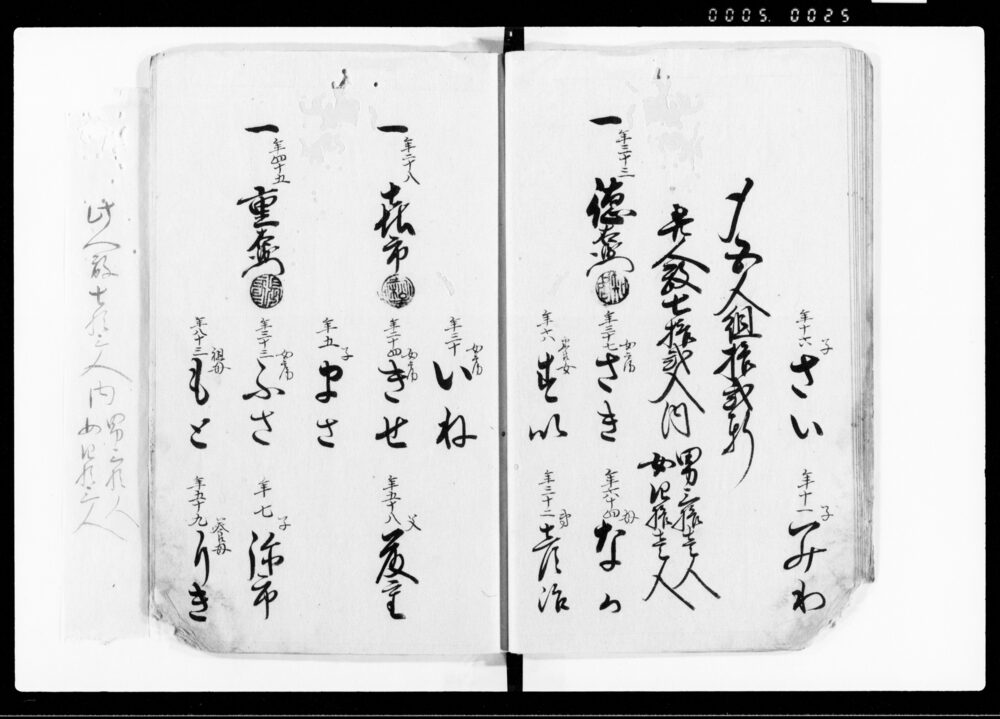 0005. 0025
年十六
子
さい
年十一
子
みわ
〆五人組拾弐軒
此人数七拾弐人内
男三拾壱人
女四拾壱人
一
年三十三
徳蔵
年三十七
女房
さき
年六十四
母
なか
年六
養女
すい
年三十二
弟
年三十
女房
いね
一
年二十八
喜市
年二十四
女房
きせ
年五十八
父
年五
子
まさ
一
年四十五
重蔵
年三十三
女房
ふさ
年七
子
弥市
年八十三
祖母
もと
年五十九
養母
りき
此人数七拾三人内
男三拾人
女四拾三人